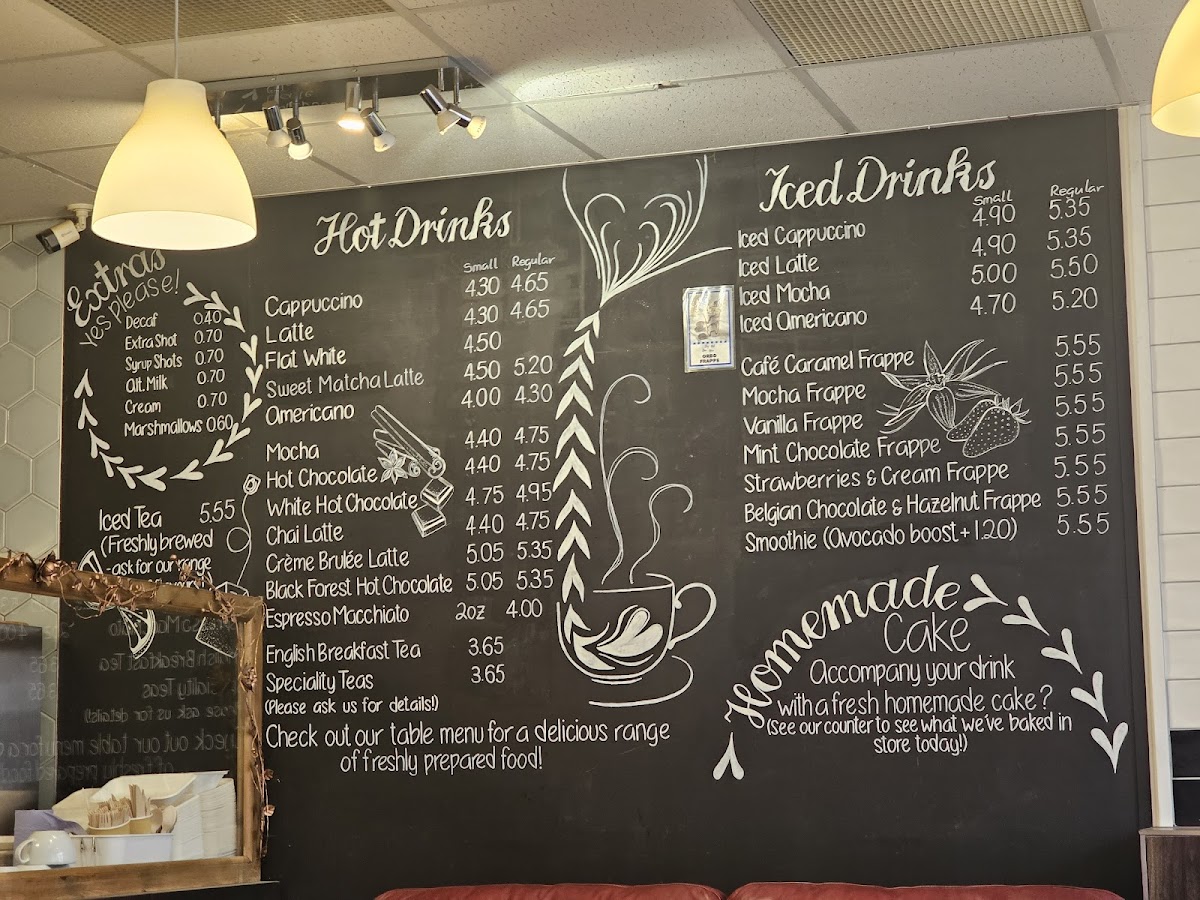 Extras
yes please!
Decaf 0.40
Extra Shot 0.70
Syrup Shots 0.70
Alt. Milk 0.70
Cream 0.70
Marshmallows 0.60
Iced Tea 5.55
(Freshly brewed
- ask for our range
Hot Drinks
Small Regular
Cappuccino 4.30 4.65
Latte 4.30 4.65
Flat White 4.50
Sweet Matcha Latte 4.50 5.20
Americano 4.00 4.30
Mocha 4.40 4.75
Hot Chocolate 4.40 4.75
White Hot Chocolate 4.75 4.95
Chai Latte 4.40 4.75
Crème Brulée Latte 5.05 5.35
Black Forest Hot Chocolate 5.05 5.35
Espresso Macchiato 2oz 4.00
English Breakfast Tea 3.65
Speciality Teas 3.65
(Please ask us for details!)
Check out our table menu for a delicious range
of freshly prepared food!
OREO
FRAPPE
Iced Drinks
Small Regular
Iced Cappuccino 4.90 5.35
Iced Latte 4.90 5.35
Iced Mocha 5.00 5.50
Iced Americano 4.70 5.20
Café Caramel Frappe 5.55
Mocha Frappe 5.55
Vanilla Frappe 5.55
Mint Chocolate Frappe 5.55
Strawberries & Cream Frappe 5.55
Belgian Chocolate & Hazelnut Frappe 5.55
Smoothie (Avocado boost + 1.20) 5.55
Homemade
Cake
Accompany your drink
with a fresh homemade cake?
(See our counter to see what we've baked in
store today!)